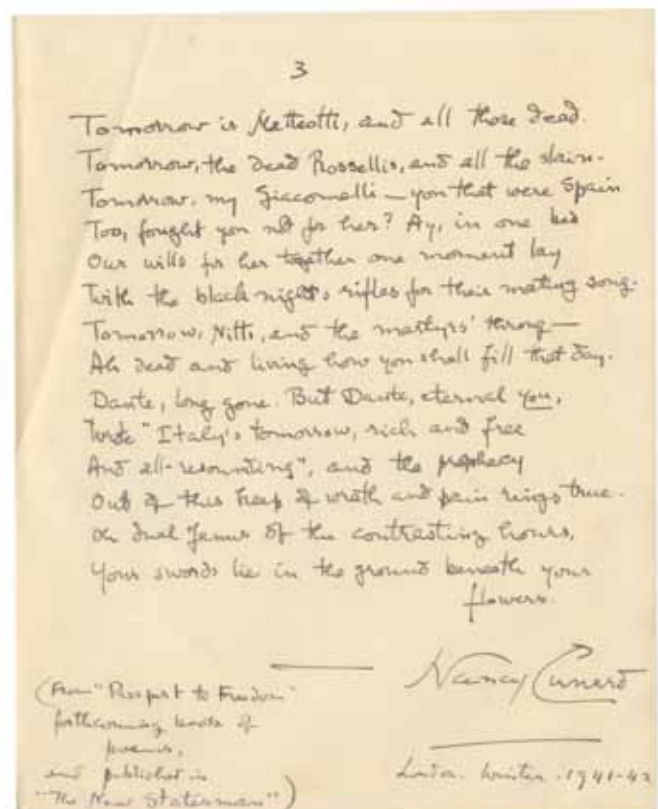 3
Tomorrow is Matteotti, and all those dead.
Tomorrow, the dead Rossellis, and all the slain.
Tomorrow, my Giacomelli — you that were Spain
Too, fought you not for her? Ay, in one bed
Our wills for her together one moment lay
With the black night's rifles for their mating song.
Tomorrow, Nitti, and the martyrs' throng —
Ah dead and living how you shall fill that day.
Dante, long gone. But Dante, eternal you,
Wrote "Italy's tomorrow, rich and free
And all-resounting", and the prophecy
Out of this heap of wrath and pain rings true.
Oh dual Janus of the contrasting hours,
Your swords lie in the ground beneath your
flowers.
Nancy Cunard
(From "Passport to Freedom"
forthcoming book of
poems,
and published in
"The New Statesman")
London. Winter. 1941-42